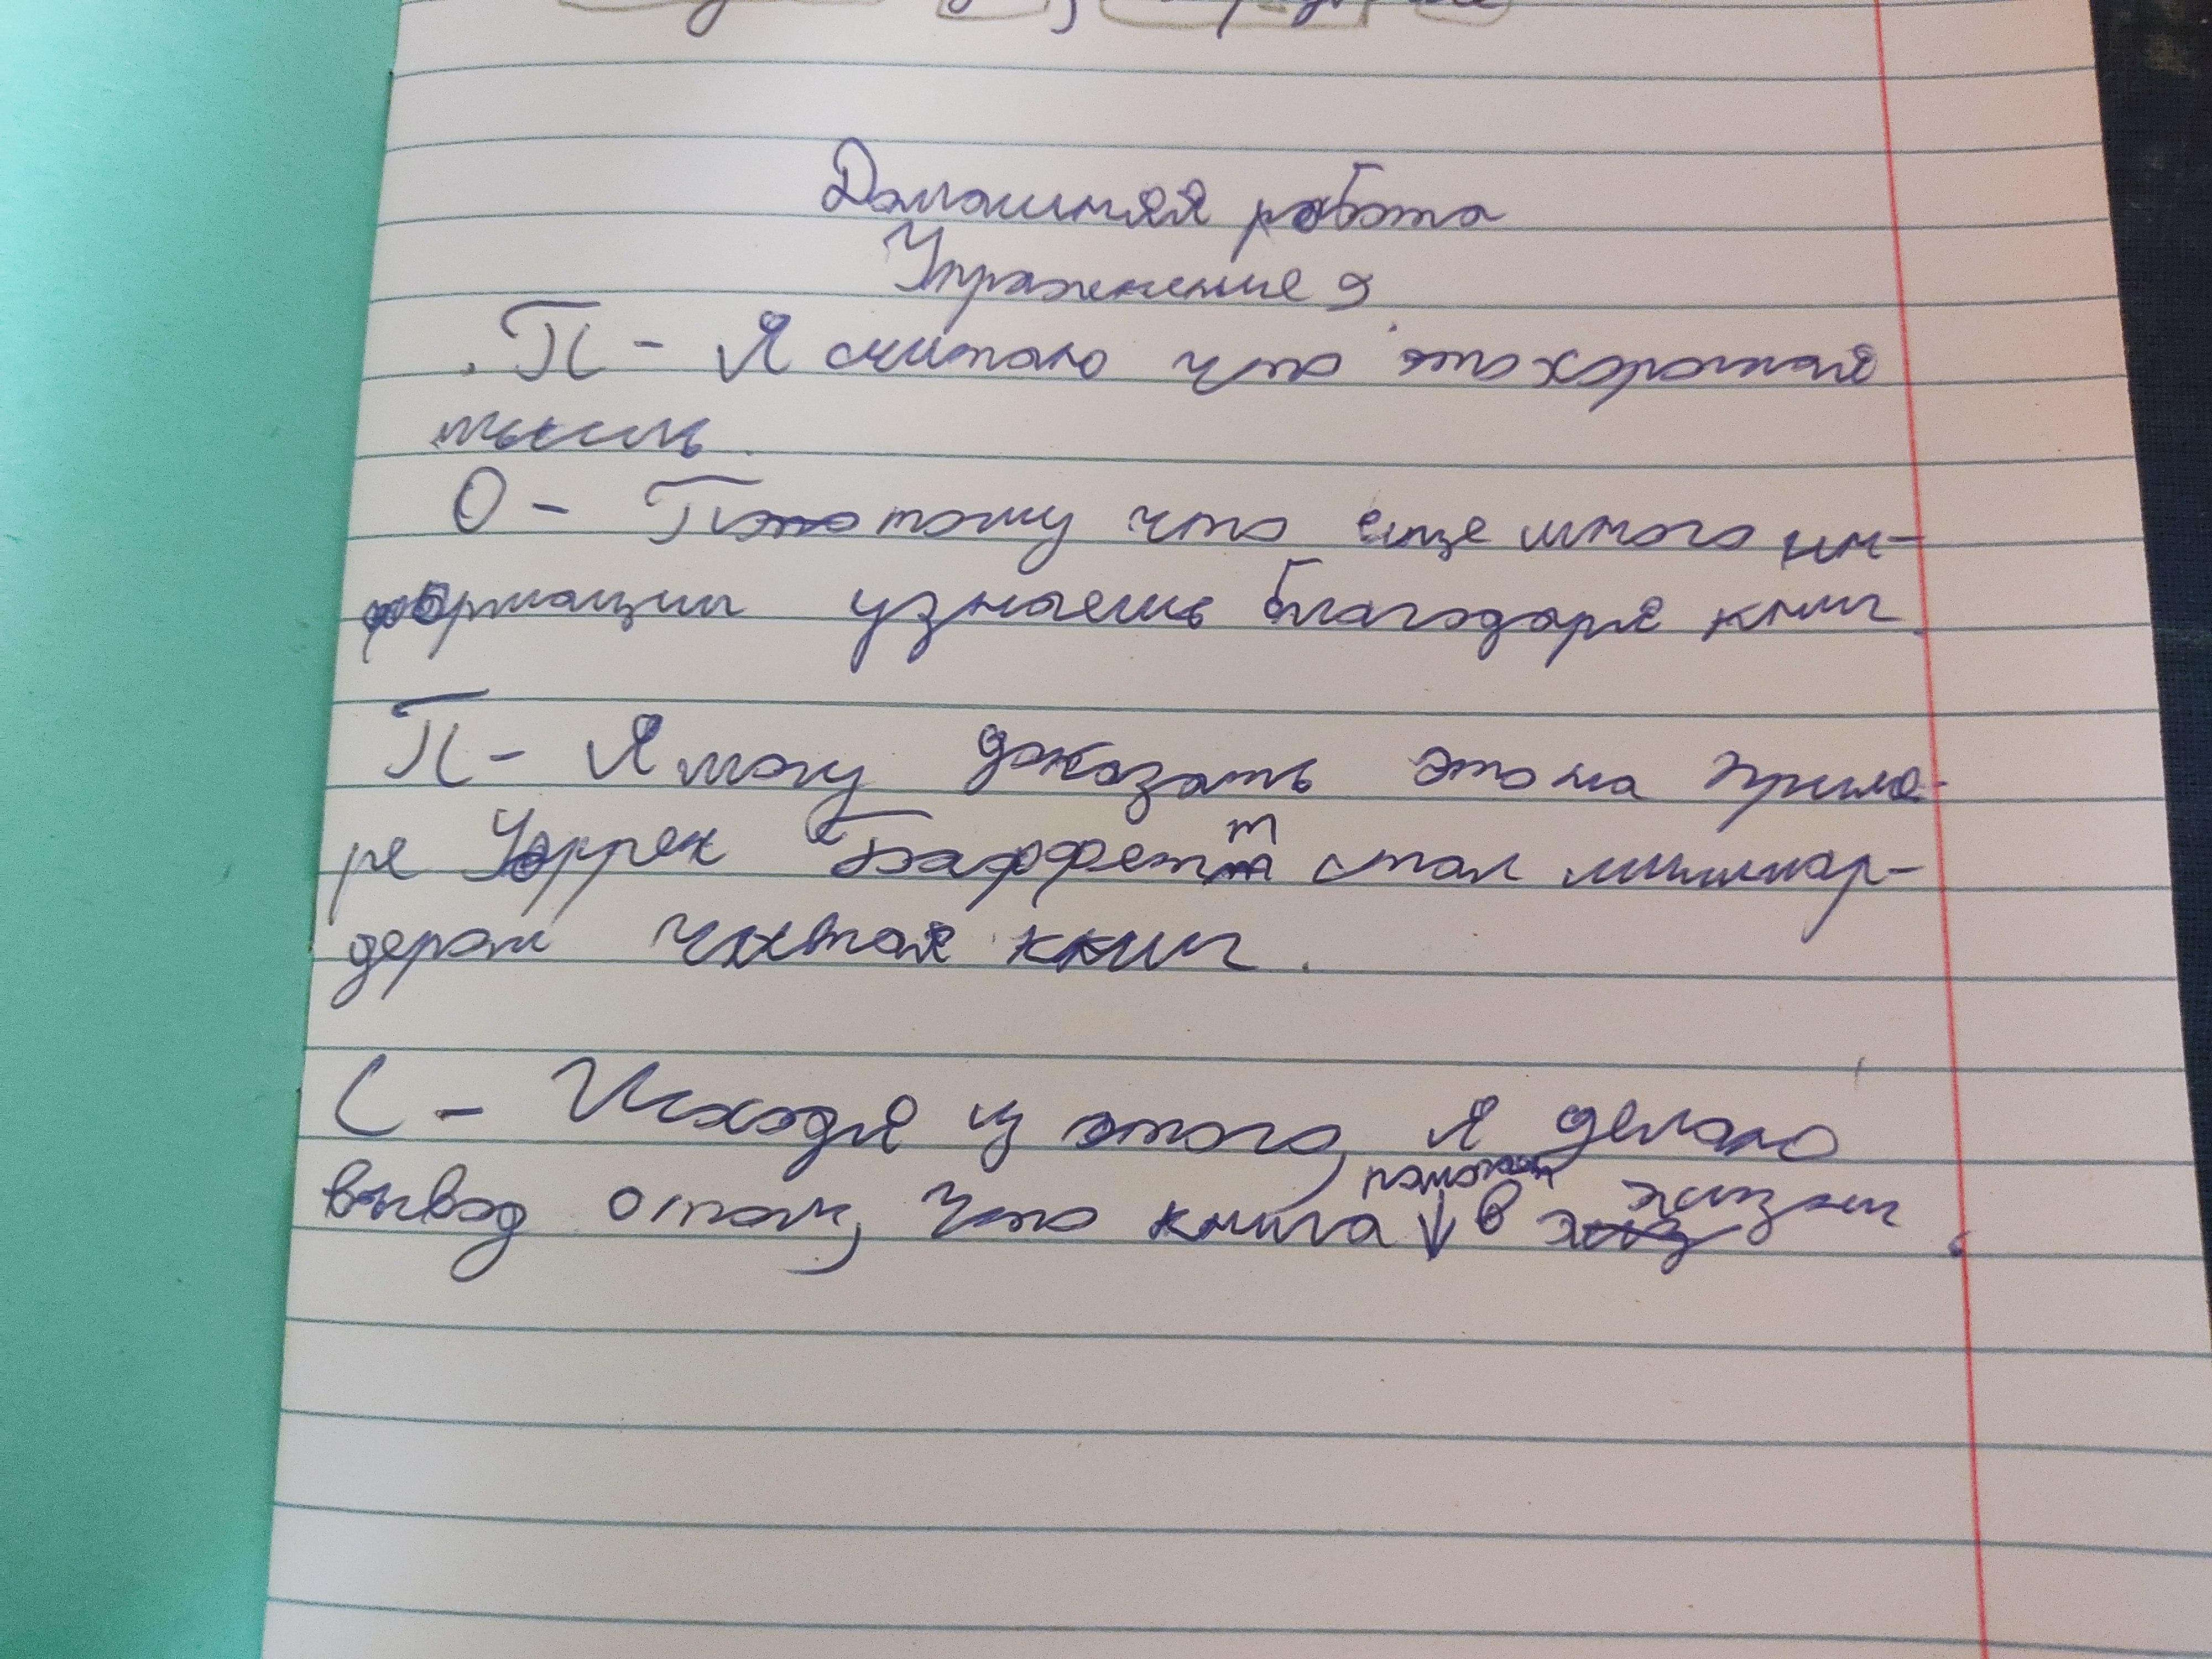 Домашняя работа
Упражнение 2
П - Я считаю что это хорошая
мысль.
О - Потому что еще много ин-
формации узнаешь благодаря книг.
П - Я могу доказать это на приме-
ре Уоррен Баффетт стал миллиар-
дером читая книг.
С - Исходя из этого, я делаю
вывод о том, что книга помощник в жизни.